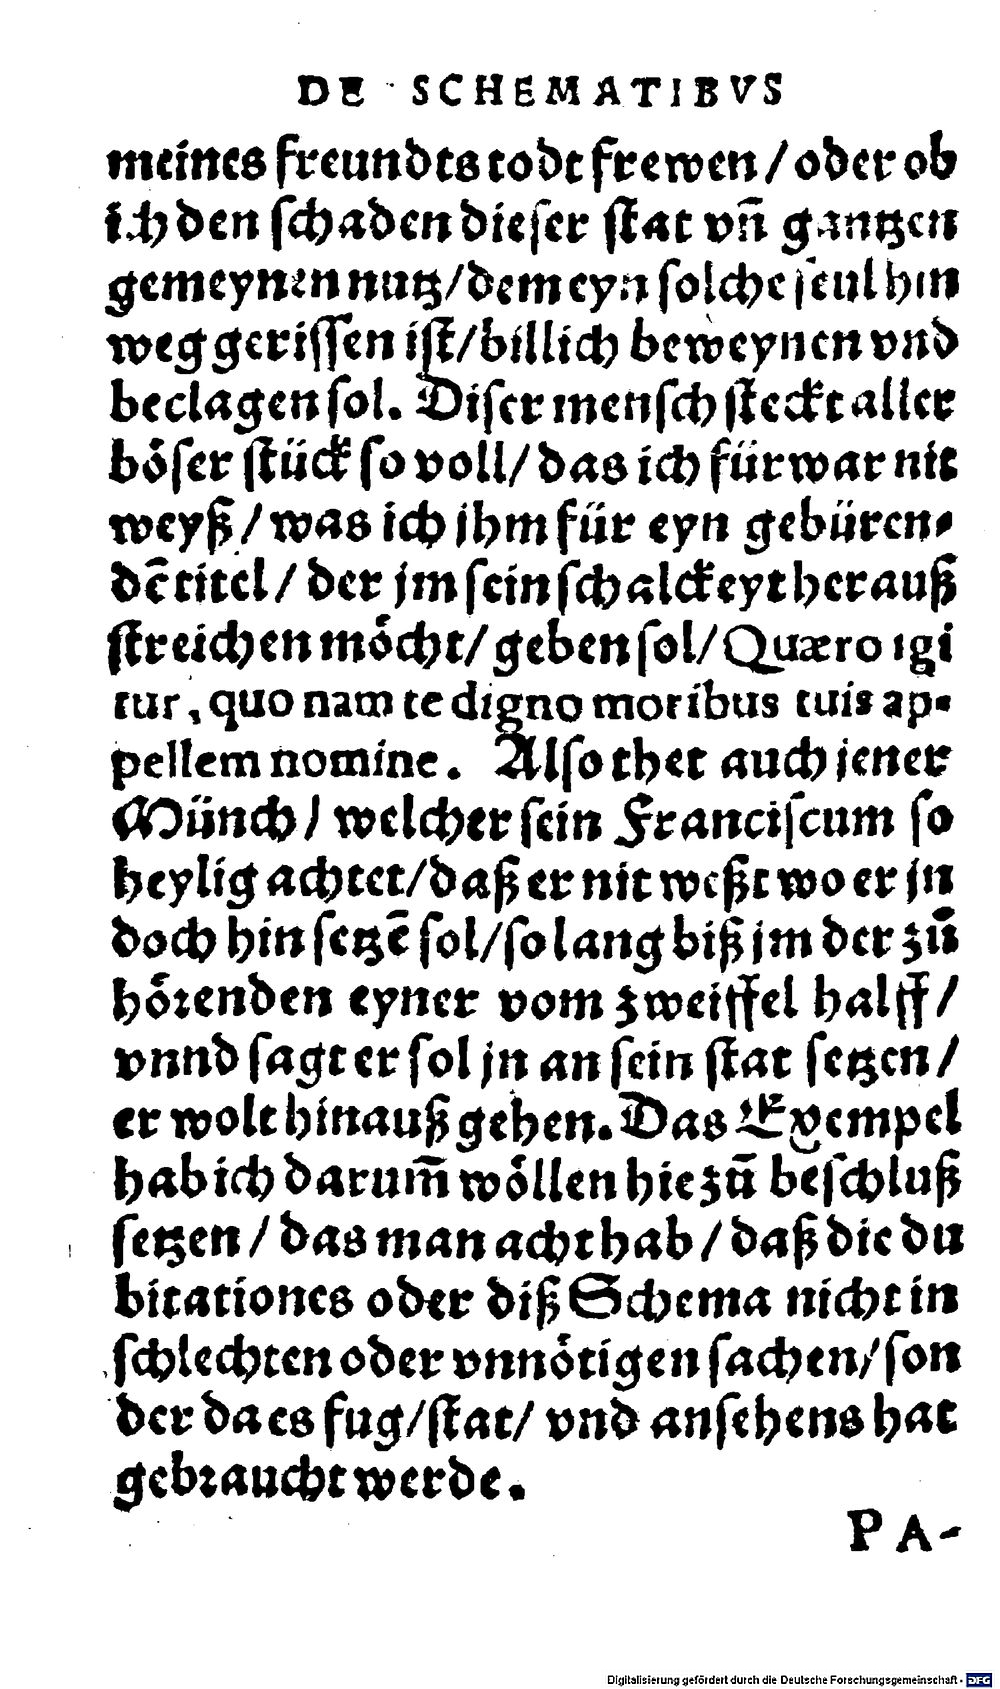 DE SCHEMATIBVS
meines freundts todt frewen / oder ob
ich den schaden dieser stat vñ gantzen
gemeynen nutz / dem eyn solche seul hin
weg gerissen ist / billich beweynen vnd
beclagen sol. Diser mensch steckt aller
böser stück so voll / das ich fürwar nit
weyß / was ich jhm für eyn gebüren⸗
dē titel / der jm sein schalckeyt herauß
streichen möcht / geben sol / Quæro igi
tur, quo nam te digno moribus tuis ap⸗
pellem nomine. Also thet auch jener
Münch / welcher sein Franciscum so
heylig achtet / daß er nit weßt wo er jn
doch hin setzē sol / so lang biß jm der zů
hörenden eyner vom zweiffel halff /
vnnd sagt er sol jn an sein stat setzen /
er wolt hinauß gehen. Das Exempel
hab ich darum̄ wöllen hie zů beschluß
setzen / das man acht hab / daß die du
bitationes oder diß Schema nicht in
schlechten oder vnnötigen sachen / son
der da es fug / stat / vnd ansehens hat
gebraucht werde.
PA-
Digitalisierung gefördert durch die Deutsche Forschungsgemeinschaft - DFG